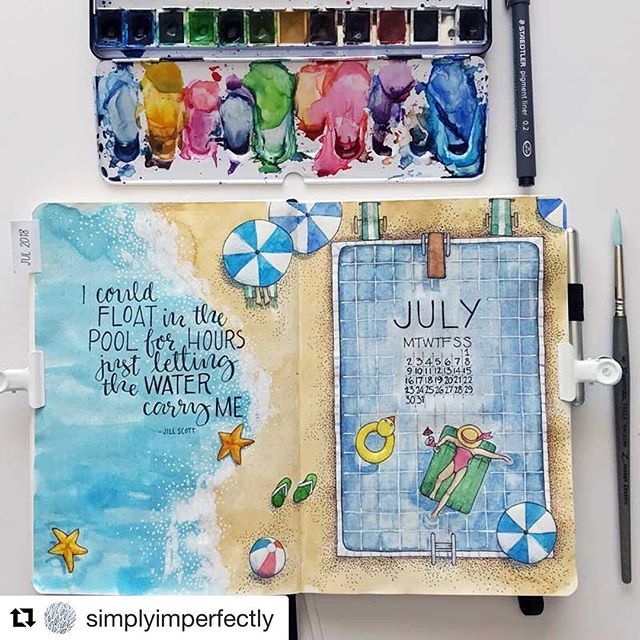 STAEDTLER pigment liner 0.2
JUL 2018
I could
FLOAT in the
POOL for HOURS
just letting
the WATER
carry ME
-JILL SCOTT
JULY
M T W T F S S
1
2 3 4 5 6 7 8
9 10 11 12 13 14 15
16 17 18 19 20 21 22
23 24 25 26 27 28 29
30 31
simplyimperfectly